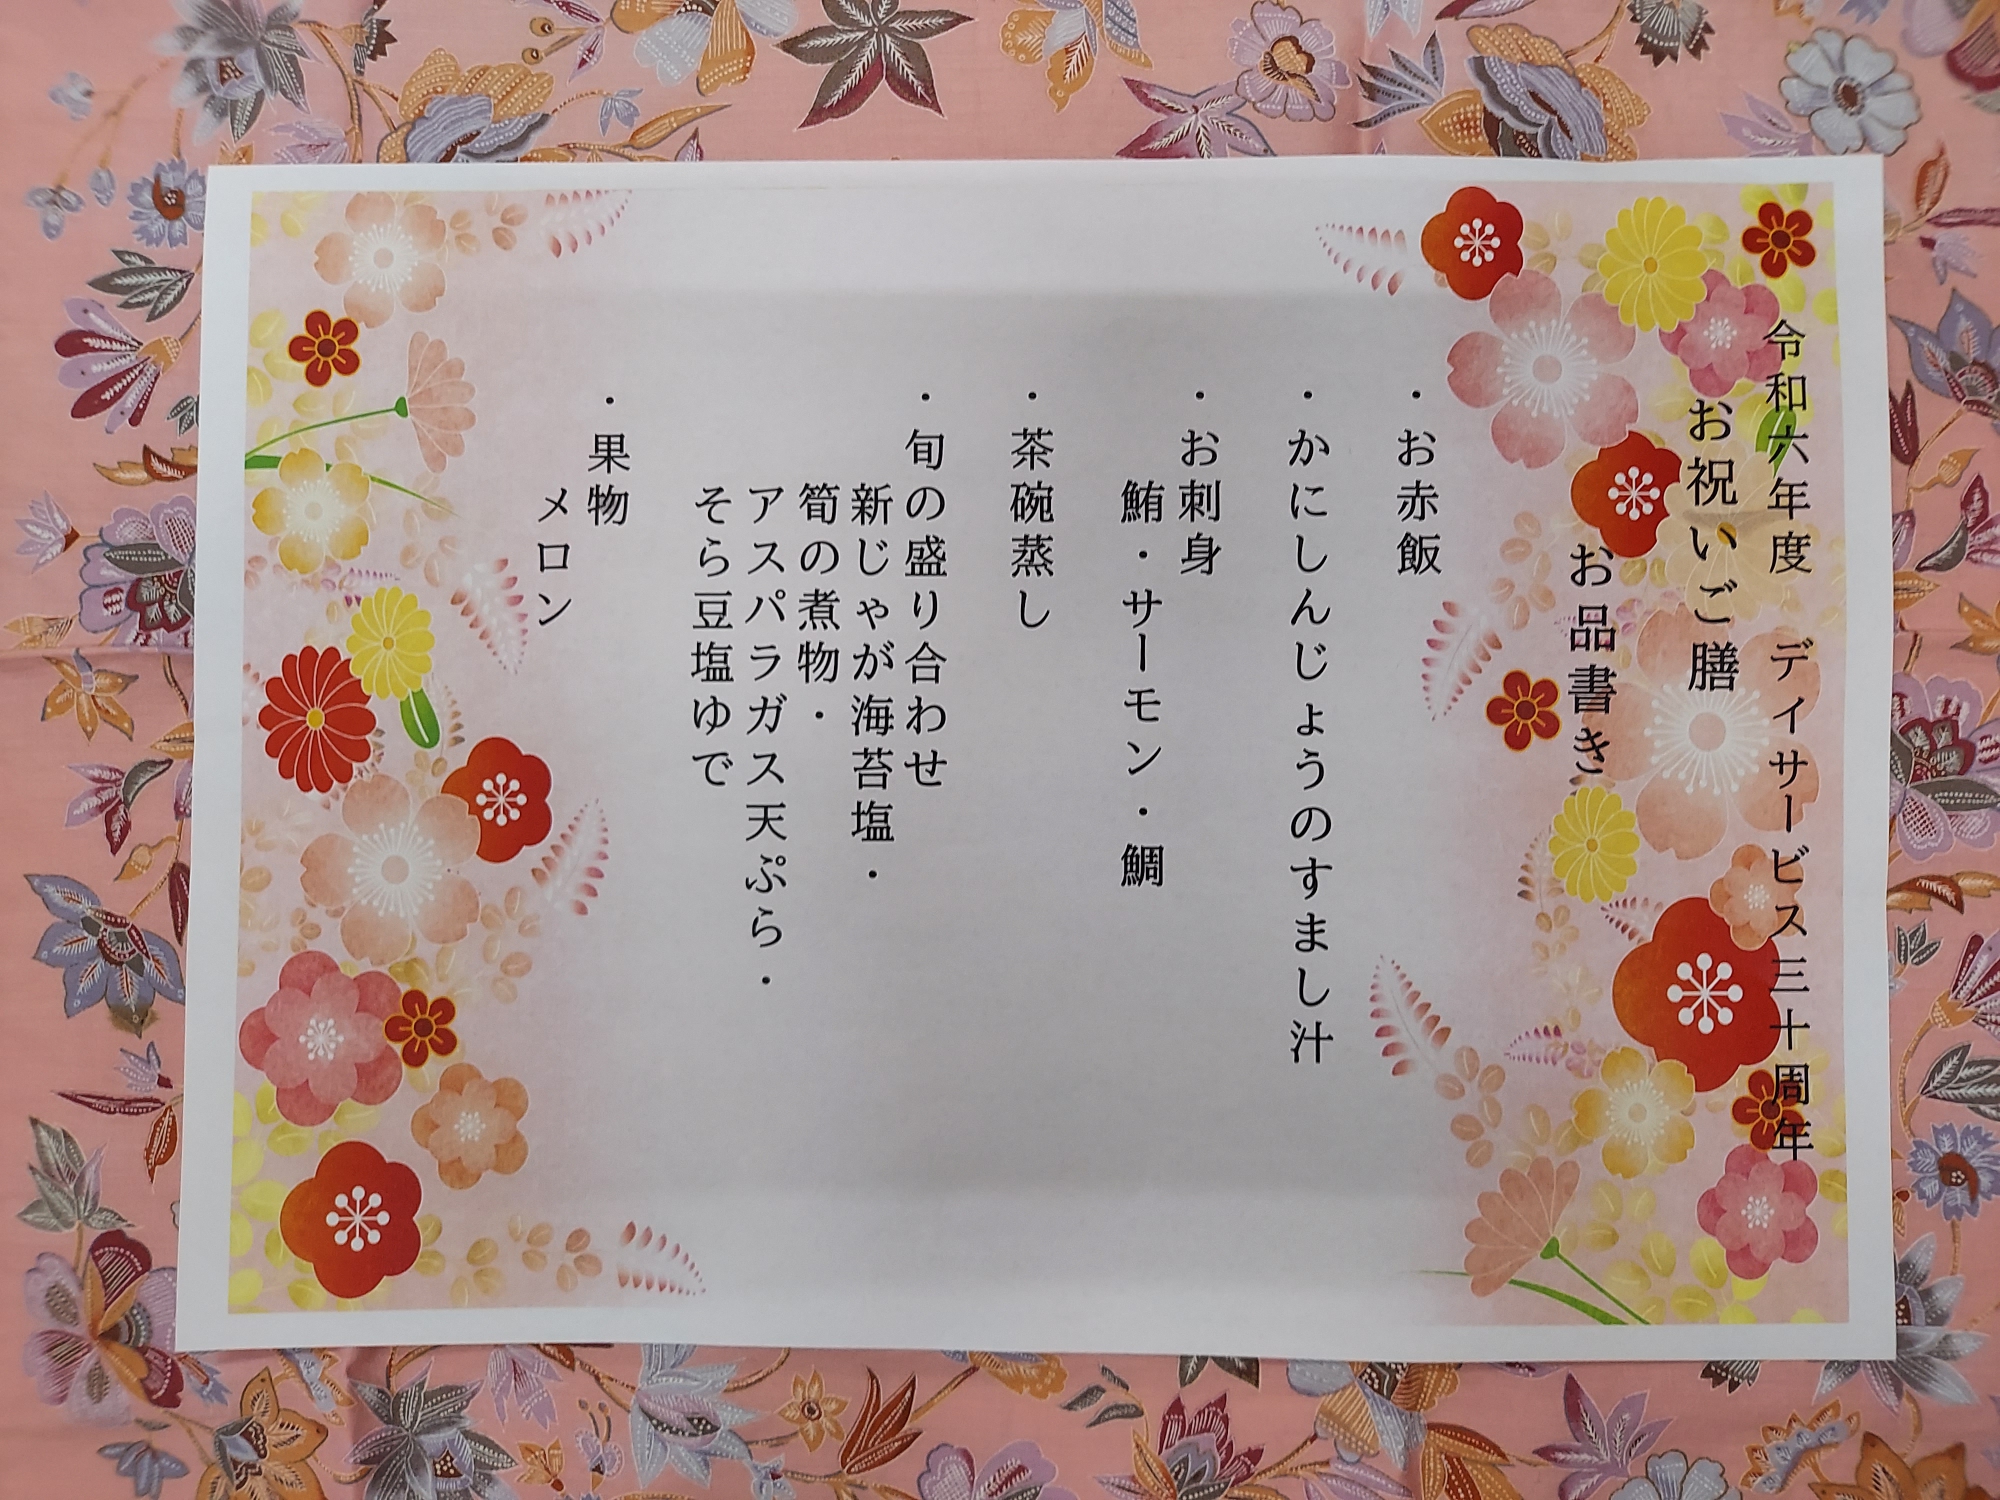 令和六年度　デイサービス三十周年
お祝いご膳
お品書き
・お赤飯
・かにしんじょうのすまし汁
・お刺身
鮪・サーモン・鯛
・茶碗蒸し
・旬の盛り合わせ
新じゃが海苔塩・
筍の煮物・
アスパラガス天ぷら・
そら豆塩ゆで
・果物
メロン